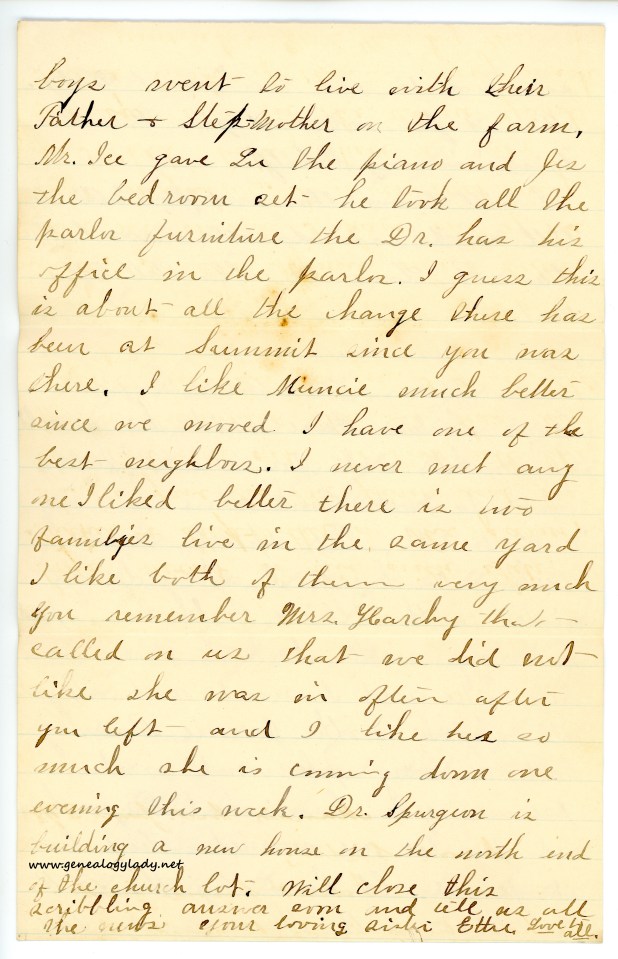 boys went to live with their
Father & Step-Mother on the farm.
Mr. Ice gave Lu the piano and Jes
the bedroom set he took all the
parlor furniture the Dr. has his
office in the parlor. I guess this
is about all the change there has
been at Summit since you was
there. I like Muncie much better
since we moved. I have one of the
best neighbors. I never met any
one I liked better there is two
families live in the same yard
I like both of them very much
You remember Mrs. Hardy that
called on us that we did not
like she was in often after
you left and I like her so
much she is coming down one
evening this week. Dr. Spurgeon is
building a new house on the north end
www.genealogylady.net
of the church lot. Will close this
scribbling answer soon and tell us all
the news Your loving sister Ettie. Love to all.